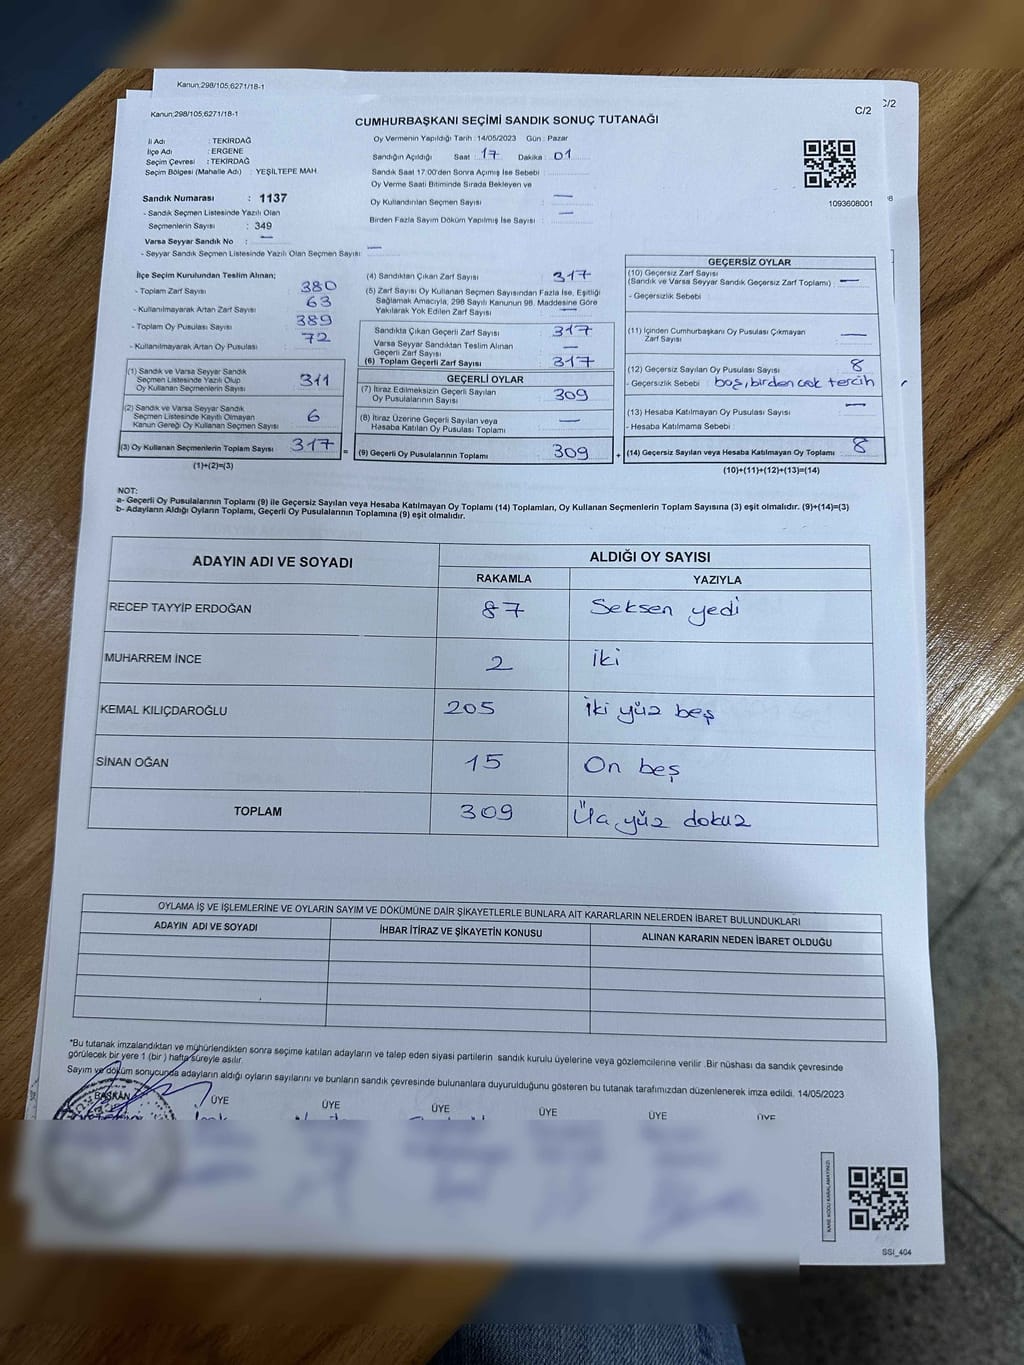 Kanun;298/105;6271/18-1
C/2
Kanun;298/105;6271/18-1
C/2
CUMHURBAŞKANI SEÇİMİ SANDIK SONUÇ TUTANAĞI
İl Adı : TEKİRDAĞ
İlçe Adı : ERGENE
Seçim Çevresi : TEKİRDAĞ
Seçim Bölgesi (Mahalle Adı) : YEŞİLTEPE MAH
Oy Vermenin Yapıldığı Tarih : 14/05/2023 Gün : Pazar
Sandığın Açıldığı Saat : 17 Dakika : 01
Sandık Saat 17:00'den Sonra Açımış İse Sebebi :
Oy Verme Saati Bitiminde Sırada Bekleyen ve
Oy Kullandırılan Seçmen Sayısı : —
Birden Fazla Sayım Döküm Yapılmış İse Sayısı : —
1093608001
Sandık Numarası : 1137
- Sandık Seçmen Listesinde Yazılı Olan
Seçmenlerin Sayısı : 349
Varsa Seyyar Sandık No : —
- Seyyar Sandık Seçmen Listesinde Yazılı Olan Seçmen Sayısı : —
İlçe Seçim Kurulundan Teslim Alınan;
- Toplam Zarf Sayısı : 380
- Kullanılmayarak Artan Zarf Sayısı : 63
- Toplam Oy Pusulası Sayısı : 389
- Kullanılmayarak Artan Oy Pusulası : 72
(1) Sandık ve Varsa Seyyar Sandık
Seçmen Listesinde Yazılı Olup
Oy Kullanan Seçmenlerin Sayısı : 311
(2) Sandık ve Varsa Seyyar Sandık
Seçmen Listesinde Kayıtlı Olmayan
Kanun Gereği Oy Kullanan Seçmen Sayısı : 6
(3) Oy Kullanan Seçmenlerin Toplam Sayısı : 317
(1)+(2)=(3)
(4) Sandıktan Çıkan Zarf Sayısı : 317
(5) Zarf Sayısı Oy Kullanan Seçmen Sayısından Fazla İse, Eşitliği
Sağlamak Amacıyla, 298 Sayılı Kanunun 98. Maddesine Göre
Yakılarak Yok Edilen Zarf Sayısı : —
Sandıkta Çıkan Geçerli Zarf Sayısı : 317
Varsa Seyyar Sandıktan Teslim Alınan
Geçerli Zarf Sayısı : —
(6) Toplam Geçerli Zarf Sayısı : 317
GEÇERLİ OYLAR
(7) İtiraz Edilmeksizin Geçerli Sayılan
Oy Pusulalarının Sayısı : 309
(8) İtiraz Üzerine Geçerli Sayılan veya
Hesaba Katılan Oy Pusulası Toplamı : —
= (9) Geçerli Oy Pusulalarının Toplamı : 309
GEÇERSİZ OYLAR
(10) Geçersiz Zarf Sayısı
(Sandık ve Varsa Seyyar Sandık Geçersiz Zarf Toplamı) : —
- Geçersizlik Sebebi :
(11) İçinden Cumhurbaşkanı Oy Pusulası Çıkmayan
Zarf Sayısı : —
(12) Geçersiz Sayılan Oy Pusulası Sayısı : 8
- Geçersizlik Sebebi : boş, birden çok tercih
(13) Hesaba Katılmayan Oy Pusulası Sayısı : —
- Hesaba Katılmama Sebebi :
+ (14) Geçersiz Sayılan veya Hesaba Katılmayan Oy Toplamı : 8
(10)+(11)+(12)+(13)=(14)
NOT:
a- Geçerli Oy Pusulalarının Toplamı (9) ile Geçersiz Sayılan veya Hesaba Katılmayan Oy Toplamı (14) Toplamları, Oy Kullanan Seçmenlerin Toplam Sayısına (3) eşit olmalıdır. (9)+(14)=(3)
b- Adayların Aldığı Oyların Toplamı, Geçerli Oy Pusulalarının Toplamına (9) eşit olmalıdır.
ADAYIN ADI VE SOYADI
ALDIĞI OY SAYISI
RAKAMLA YAZIYLA
RECEP TAYYİP ERDOĞAN 87 Seksen yedi
MUHARREM İNCE 2 iki
KEMAL KILIÇDAROĞLU 205 iki yüz beş
SİNAN OĞAN 15 On beş
TOPLAM 309 Üç yüz dokuz
OYLAMA İŞ VE İŞLEMLERİNE VE OYLARIN SAYIM VE DÖKÜMÜNE DAİR ŞİKAYETLERLE BUNLARA AİT KARARLARIN NELERDEN İBARET BULUNDUKLARI
ADAYIN ADI VE SOYADI İHBAR İTİRAZ VE ŞİKAYETİN KONUSU ALINAN KARARIN NEDEN İBARET OLDUĞU
*Bu tutanak imzalandıktan ve mühürlendikten sonra seçime katılan adayların ve talep eden siyasi partilerin sandık kurulu üyelerine veya gözlemcilerine verilir .Bir nüshası da sandık çevresinde
görülecek bir yere 1 (bir ) hafta süreyle asılır.
Sayım ve döküm sonucunda adayların aldığı oyların sayılarını ve bunların sandık çevresinde bulunanlara duyurulduğunu gösteren bu tutanak tarafımızdan düzenlenerek imza edildi. 14/05/2023
BAŞKAN ÜYE ÜYE ÜYE ÜYE ÜYE ÜYE
KARE KODU KARALAMAYINIZ!
SSI_404